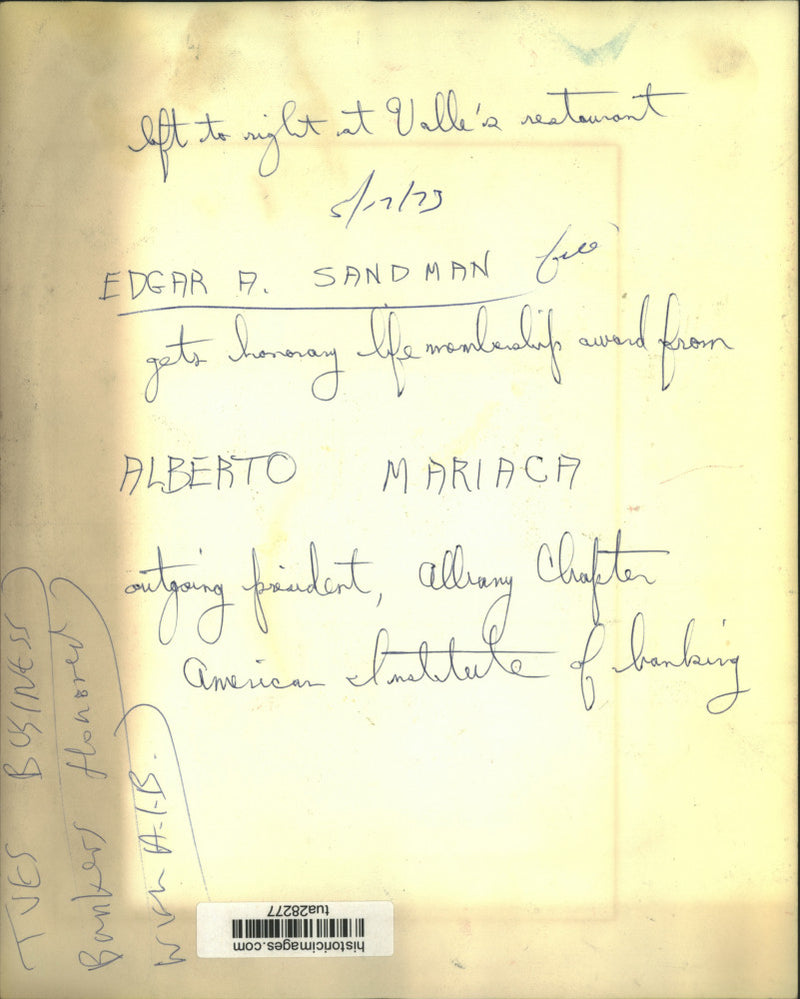 left to right at Valle's restaurant
5/17/73
EDGAR A. SANDMAN file
gets honorary life membership award from
ALBERTO MARIACA
outgoing president, Albany Chapter
American Institute of banking
TUES BUSINESS
Bankers Honored
With A.I.B.
historicimages.com
tua28277